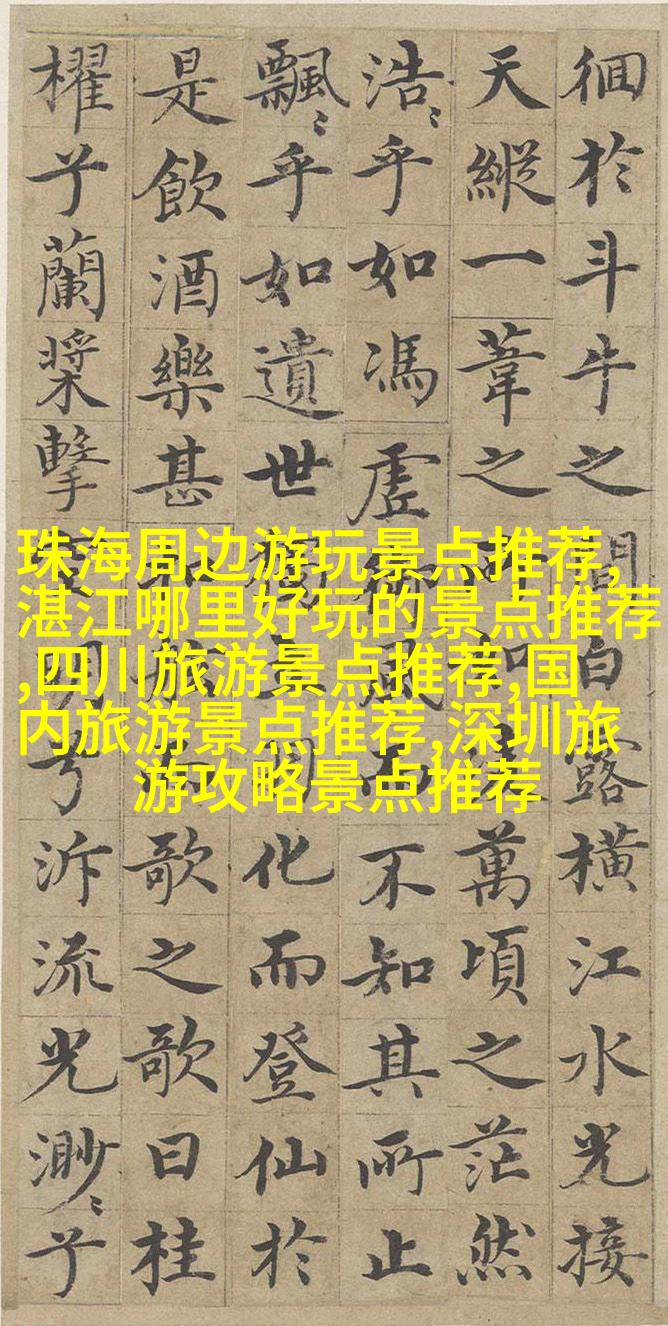 徊於斗牛之間白露橫江水光接
天縱一葦之所如凌萬頃之茫然
浩〻乎如馮虛御風而不知其所止
飄〻乎如遺世獨立羽化而登仙於
是飲酒樂甚扣舷而歌之歌曰桂
櫂兮蘭槳擊空明兮泝流光渺〻兮
珠海周边游玩景点推荐,
湛江哪里好玩的景点推荐
,四川旅游景点推荐,国
内旅游景点推荐,深圳旅
游攻略景点推荐